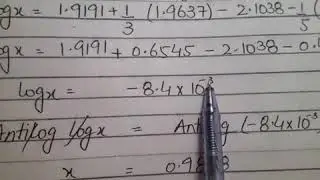 logx = 1.9191 + 1/3 (1.9637) - 2.1038 - 1/5
logx = 1.9191 + 0.6545 - 2.1038 - 0.
logx = -8.4 x 10⁻³
Antilog logx = Antilog (-8.4x10⁻³
x =